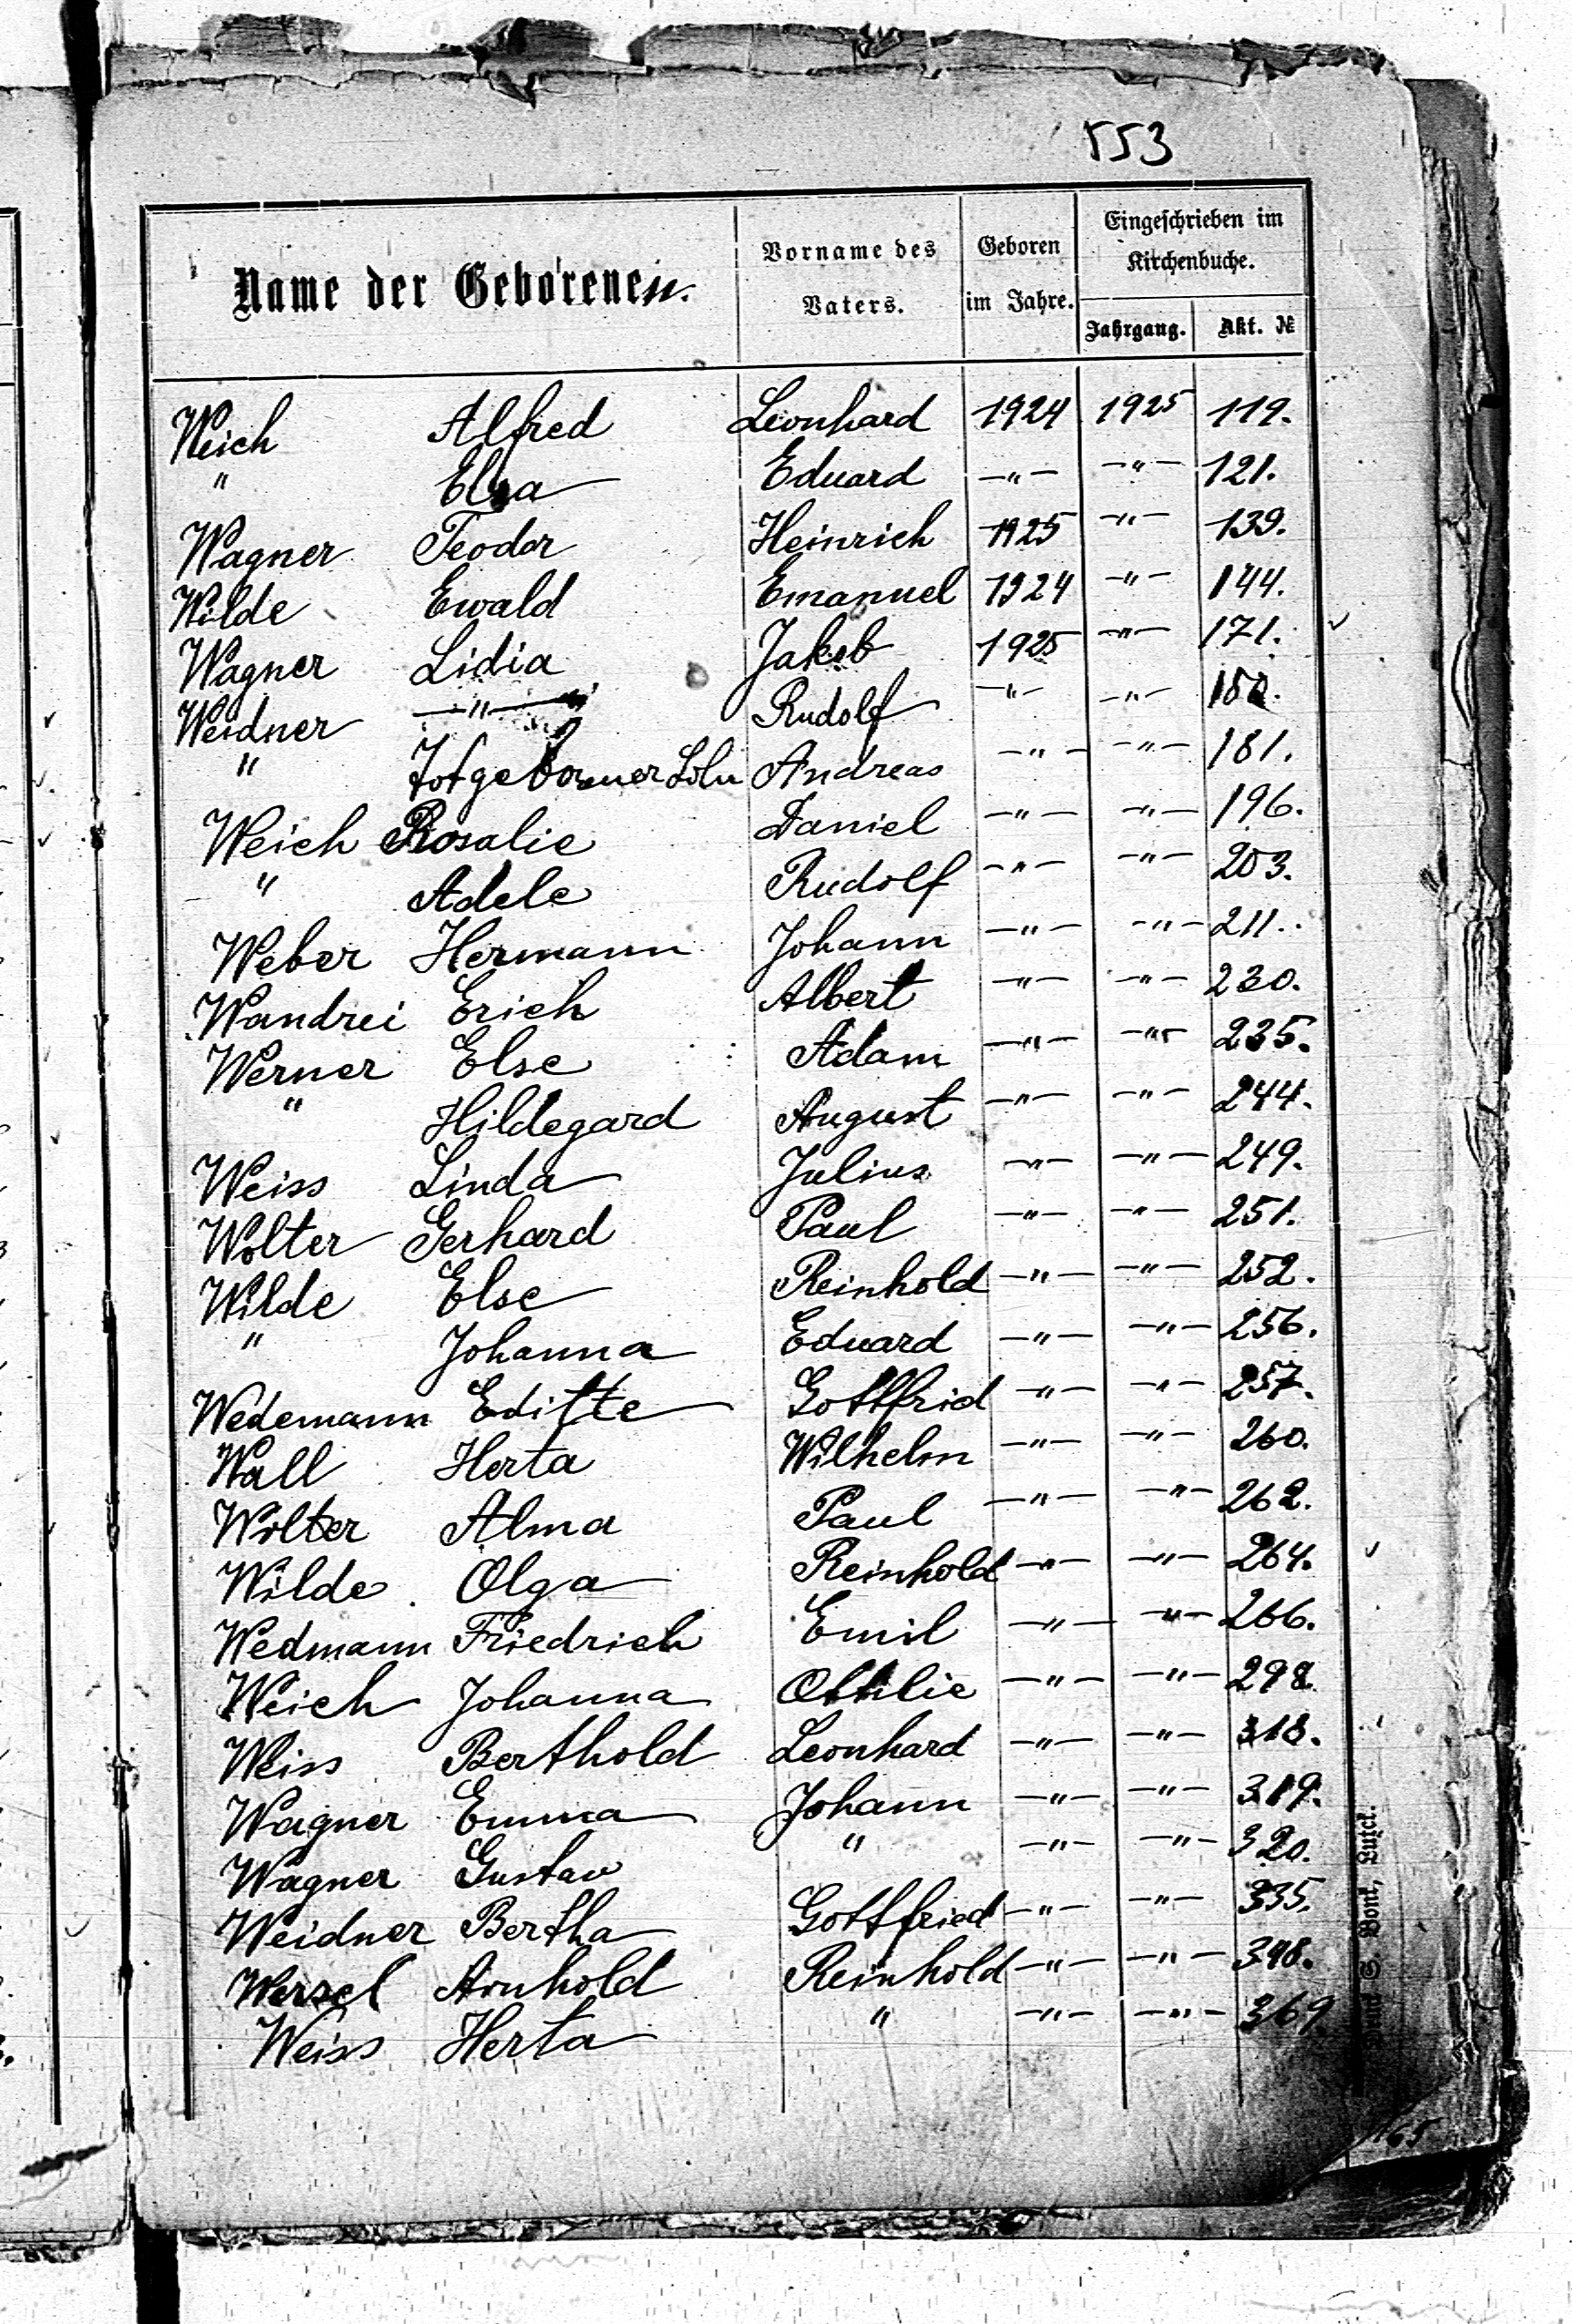 553
Name der Geborenen.
Vorname des Vaters.
Geboren im Jahre.
Eingeschrieben im Kirchenbuche.
Jahrgang. Akt. №
Weich Alfred Leonhard 1924 1925 119.
" Elsa Eduard —"— —"— 121.
Wagner Teodor Heinrich 1925 —"— 139.
Wilde Ewald Emanuel 1924 —"— 144.
Wagner Lidia Jakob 1925 —"— 171.
Weidner —"— Rudolf —"— —"— 180.
" Totgeborener Sohn Andreas —"— —"— 181.
Weich Rosalie Daniel —"— —"— 196.
" Adele Rudolf —"— —"— 203.
Weber Hermann Johann —"— —"— 211.
Wandrei Erich Albert —"— —"— 230.
Werner Else Adam —"— —"— 235.
" Hildegard August —"— —"— 244.
Weiss Linda Julius —"— —"— 249.
Wolter Gerhard Paul —"— —"— 251.
Wilde Else Reinhold —"— —"— 252.
" Johanna Eduard —"— —"— 256.
Wedemann Editte Gottfrid —"— —"— 257.
Wall Herta Wilhelm —"— —"— 260.
Wolter Alma Paul —"— —"— 262.
Wilde Olga Reinhold —"— —"— 264.
Wedmann Friedrich Emil —"— —"— 266.
Weich Johanna Ottilie —"— —"— 298.
Weiss Berthold Leonhard —"— —"— 318.
Wagner Emma Johann —"— —"— 319.
Wagner Gustav " —"— —"— 320.
Weidner Bertha Gottfried —"— —"— 335.
Wersel Arnhold Reinhold —"— —"— 348.
Weiss Herta " —"— —"— 369.
Luzk.
165